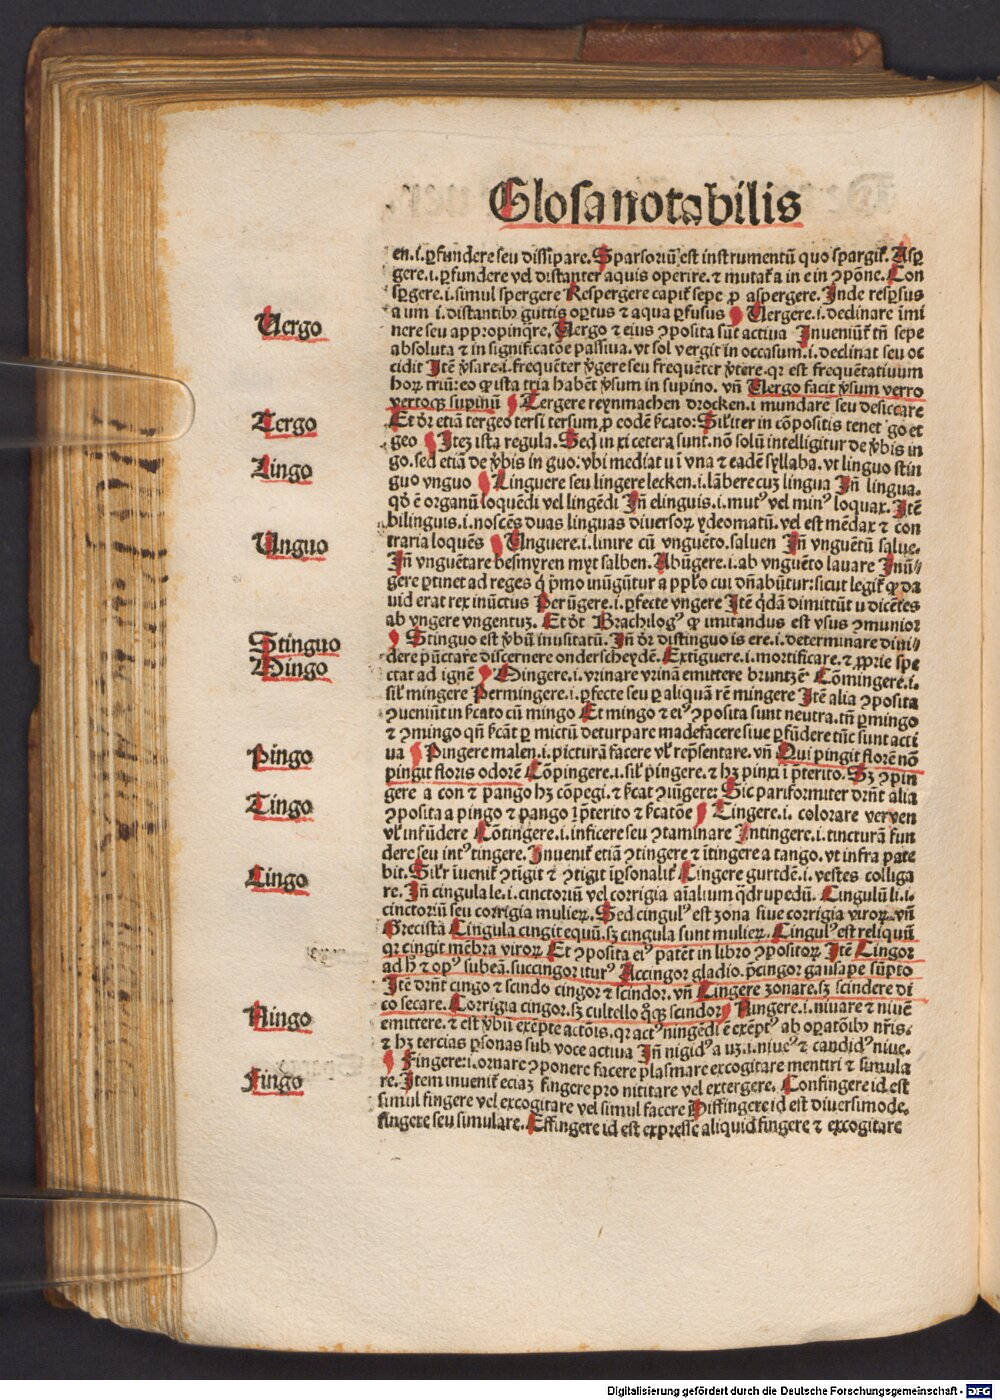 Glosa notabilis
en .i. ꝑfundere seu dissipare. Sparsoriū est instrumentū quo spargit̄. Aspꝑ
gere .i. ꝑfundere vel distanter aquis operire. ⁊ mutat̄ a in e in ꝯpōne. Con
spꝑgere .i. simul spergere Respergere capit̄ sepe ꝓ aspergere. Inde respꝑsus
a um .i. distantibꝰ guttis opꝑtus ⁊ aqua ꝑfusus Uergere .i. declinare īmi
Uergo
nere seu appropinq̄re. Uergo ⁊ eius ꝯposita sūt actiua Inueniūt̄ tn̄ sepe
absoluta ⁊ in significatōe passiua. vt sol vergit in occasum .i. declinat seu oc
cidit Itē v̄sare .i. frequēter v̄gere seu frequēter v̄tere. qꝛ est frequētatiuum
hoꝝ triū: eo ꝙ ista tria habēt v̄sum in supino. vn̄ Uergo facit v̄sum verro
vertoqꝫ supinū Tergere reynmachen drocken .i. mundare seu desiccare
Tergo
Et dr̄ etiā tergeo tersi tersum, ꝓ codē ẜcato: Silʳiter in cōpositis tenet go et
geo Iteꝫ ista regula. Sed in xi cetera sunt. nō solū intelligitur de v̄bis in
Lingo
go. sed etiā de v̄bis in guo: vbi mediat u ī vna ⁊ eadē syllaba. vt linguo stin
guo vnguo Linguere seu lingere lecken .i. lābere cuꝫ lingua In̄ lingua.
qḋ ē organū loquēdi vel lingēdi In̄ elinguis .i. mutꝰ vel minꝰ loquax. Itē
bilinguis .i. noscēs duas linguas diuersoꝝ ydeomatū. vel est mēdax ⁊ con
traria loquēs Unguere .i. linire cū vnguēto. saluen In̄ vnguētū salue.
Unguo
In̄ vnguētare besmyren myt salben. Abūgere .i. ab vnguēto lauare Inū⸗
gere ꝑtinet ad reges q̇ pͥmo inūgūtur a ppl̄o cui dn̄abūtur: sicut legit̄ ꝙ da
uid erat rex inūctus Perūgere .i. ꝑfecte vngere Itē qḋā dimittūt u dicētes
ab vngere vngentuꝫ. Et dīt Brachilogꝰ ꝙ imitandus est vsus ꝯmunior
Stinguo est v̄bū inusitatū. In̄ dr̄ distinguo is ere .i. determinare diui⸗
Stinguo
dere pūctare discernere onderscheydē. Extīguere .i. mortificare. ⁊ ꝓprie spe
Mingo
ctat ad ignē Mingere .i. vrinare vrinā emittere bruntzē Cōmingere .i.
silʳ mingere Permingere .i. ꝑfecte seu ꝑ aliquā rē mingere Itē alia ꝯposita
ꝯueniūt in ẜcato cū mingo Et mingo ⁊ eiꝰ ꝯposita sunt neutra. tn̄ ꝑmingo
⁊ ꝯmingo qn̄ ẜcāt ꝑ mictū deturpare madefacere siue ꝑfūdere tūc sunt acti
ua Pingere malen .i. picturā facere vlʳ rep̄sentare. vn̄ Qui pingit florē nō
Pingo
pingit floris odorē Cōpingere .i. silʳ pingere. ⁊ hꝫ pinxi ī p̄terito. Sꝫ ꝯpin
gere a con ⁊ pango hꝫ cōpegi. ⁊ ẜcat ꝯiūgere: Sic pariformiter drn̄t alia
Tingo
ꝯposita a pingo ⁊ pango ī p̄terito ⁊ ẜcatōe Tingere .i. colorare verven
vlʳ infūdere Cōtingere .i. inficere seu ꝯtaminare Intingere .i. tincturā fun
dere seu intꝰ tingere. Inuenit̄ etiā ꝯtingere ⁊ ītingere a tango. vt infra pate
bit. Silʳr īuenit̄ ꝯtīgit ⁊ ꝯtigit īpꝑsonalit̄ Cingere gurtdē .i. vestes colliga
Cingo
re. In̄ cingula le .i. cinctoriū vel corrigia aīalium q̄drupedū. Cingulū li .i.
cinctoriū seu corrigia mulieꝝ. Sed cingulꝰ est zona siue corrigia viroꝝ. vn̄
Grecista Cingula cingit equū. sꝫ cingula sunt mulieꝝ. Cingulꝰ est reliquū
qꝛ cingit mēbra viroꝝ Et ꝯposita eiꝰ patēt in libro ꝯpositoꝝ Itē Cingor
ad h̄ ⁊ opꝰ subeā. succingor iturꝰ Accingor gladio. p̄cingor gausape sūpto
Itē drn̄t cingo ⁊ scindo cingor ⁊ scindor. vn̄ Cingere zonare. sꝫ scindere di
co secare. Corrigia cingor. sꝫ cultello q̄qꝫ scindor Ningere .i. niuare ⁊ niuē
Ningo
emittere. ⁊ est v̄bū exēpte actōis. qꝛ actꝰ ningēdi ē exēptꝰ ab oꝑatōibꝰ nr̄is.
⁊ hꝫ tercias ꝑsonas sub voce actiua In̄ nigidꝰ a uꝫ .i. niueꝰ ⁊ candidꝰ niue.
Fingere .i. ornare ꝯponere facere plasmare excogitare mentiri ⁊ simula
Fingo
re. Item inuenit̄ eciaꝫ fingere pro nititare vel extergere. Confingere id est
simul fingere vel excogitare vel simul facere Diffingere id est diuersimode.
fingere seu simulare. Effingere id est expresse aliquid fingere ⁊ excogitare
Digitalisierung gefördert durch die Deutsche Forschungsgemeinschaft - DFG